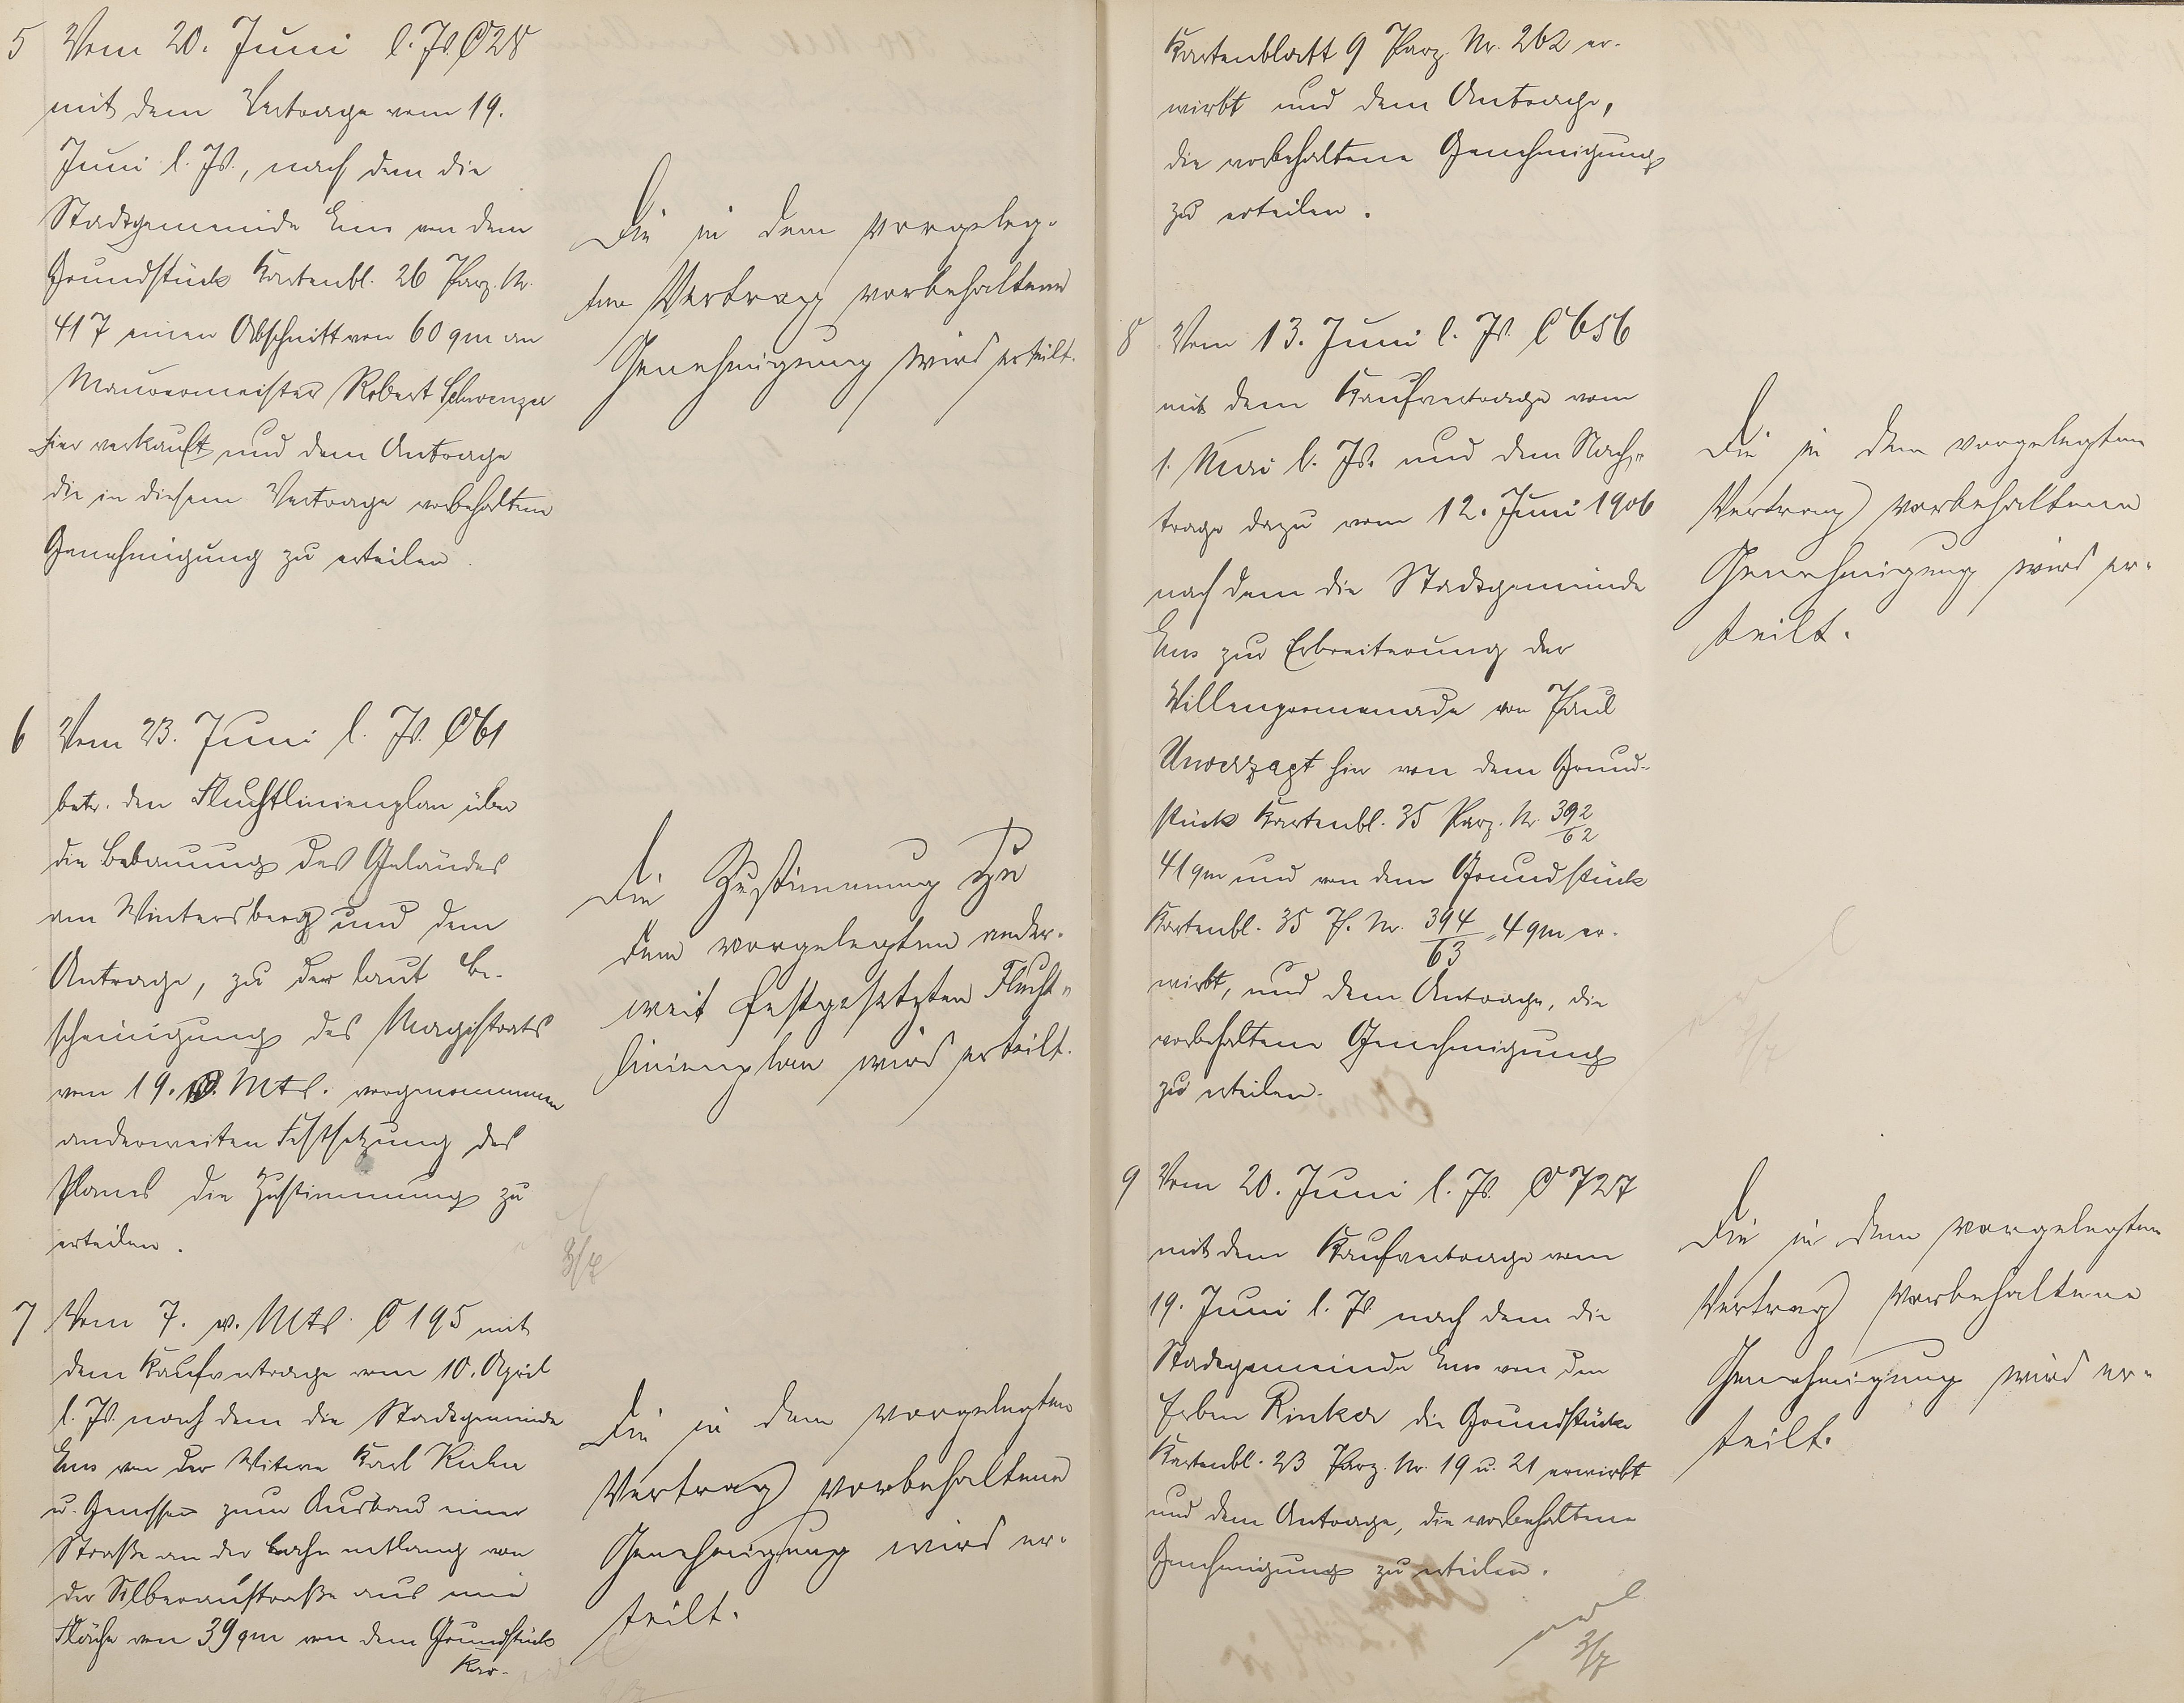 5 Vom 20. Juni l. Js. C 28
mit dem Vertrage vom 19.
Juni l. Js., nach dem die
Stadtgemeinde Ems von dem
Grundstück Kartenbl. 26 Parz. Nr.
417 einen Abschnitt von 60 qm an
Maurermeister Robert Schwenzer
hier verkauft und dem Antrage
die in diesem Vertrage vorbehaltene
Genehmigung zu erteilen.
Die in dem vorgeleg-
ten Vertrag vorbehaltene
Genehmigung wird erteilt.
6 Vom 23. Juni l. Js. C 61
betr. den Fluchtlinienplan über
die Bebauung des Geländes
am Wintersberg und dem
Antrage, zu der laut Be-
scheinigung des Magistrats
vom 19. Mts. vorgenommenen
anderweiten Festsetzung des
Planes die Zustimmung zu
erteilen.
Die Zustimmung zu
dem vorgelegten ander-
weit festgesetzten Flucht-
linienplan wird erteilt.
3/7
7 Vom 7. v. Mts. C 195 mit
dem Kaufvertrage vom 10. April
l. Js. nach dem die Stadtgemeinde
Ems von der Witwe Karl
u. Genossen zum Ausbau einer
Straße an der Lahn entlang von
der Silberaustraße aus eine
Fläche von 39 qm von dem Grundstück
Kar-
Die in dem vorgelegten
Vertrag vorbehaltene
Genehmigung wird er-
teilt.
Kartenblatt 9 Parz. Nr. 262 er-
wirbt und dem Antrage,
die vorbehaltene Genehmigung
zu erteilen.
8 Vom 13. Juni l. Js. C 656
mit dem Kaufvertrage vom
1. Mai l. Js. und dem Nach-
trage dazu vom 12. Juni 1906
nach dem die Stadtgemeinde
Ems zur Erbreiterung der
Villenpromenade von Paul
Unverzagt hier von dem Grund-
stück Kartenbl. 35 Parz. Nr. 392/62
41 qm und von dem Grundstück
Kartenbl. 35 P. Nr. 394/63 = 4 qm er-
wirbt, und dem Antrage, die
vorbehaltene Genehmigung
zu erteilen.
Die in dem vorgelegten
Vertrag vorbehaltene
Genehmigung wird er-
teilt.
3/7
9 Vom 20. Juni l. Js. C 727
mit dem Kaufvertrage vom
19. Juni l. Js. nach dem die
Stadtgemeinde Ems von den
Erben Rinker die Grundstücke
Kartenbl. 23 Parz. Nr. 19 u. 21 erwirbt
und dem Antrage, die vorbehaltene
Genehmigung zu erteilen.
Die in dem vorgelegten
Vertrag vorbehaltene
Genehmigung wird er-
teilt.
3/7